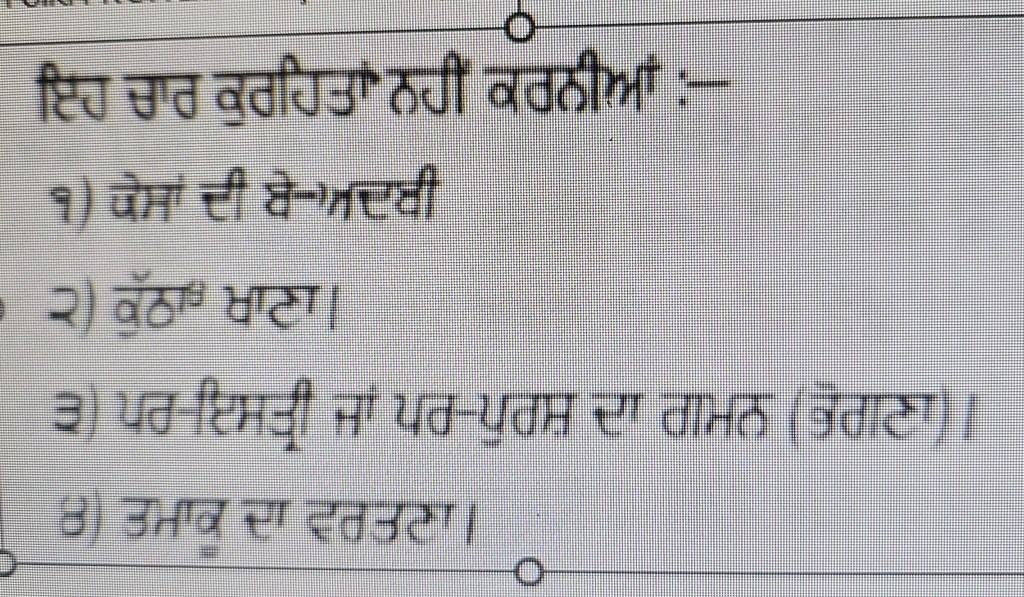 ਇਹ ਚਾਰ ਕੁਰਹਿਤਾਂ ਨਹੀਂ ਕਰਨੀਆਂ :—
੧) ਕੇਸਾਂ ਦੀ ਬੇ-ਅਦਬੀ
੨) ਕੁੱਠਾ ਖਾਣਾ।
੩) ਪਰ-ਇਸਤ੍ਰੀ ਜਾਂ ਪਰ-ਪੁਰਸ਼ ਦਾ ਗਮਨ (ਭੋਗਣਾ)।
੪) ਤਮਾਕੂ ਦਾ ਵਰਤਣਾ।